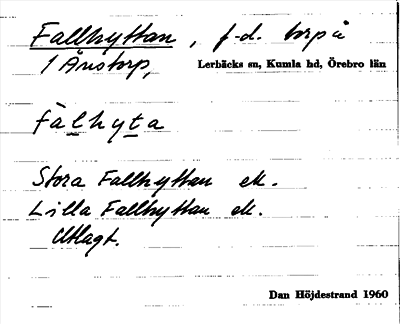 Fallhyttan, f.d. torp å
1 Ånstorp,
Lerbäcks sn, Kumla hd, Örebro län
fàlhyta
Stora Fallhyttan ek.
Lilla Fallhyttan ek.
Utlagt.
Dan Höjdestrand 1960